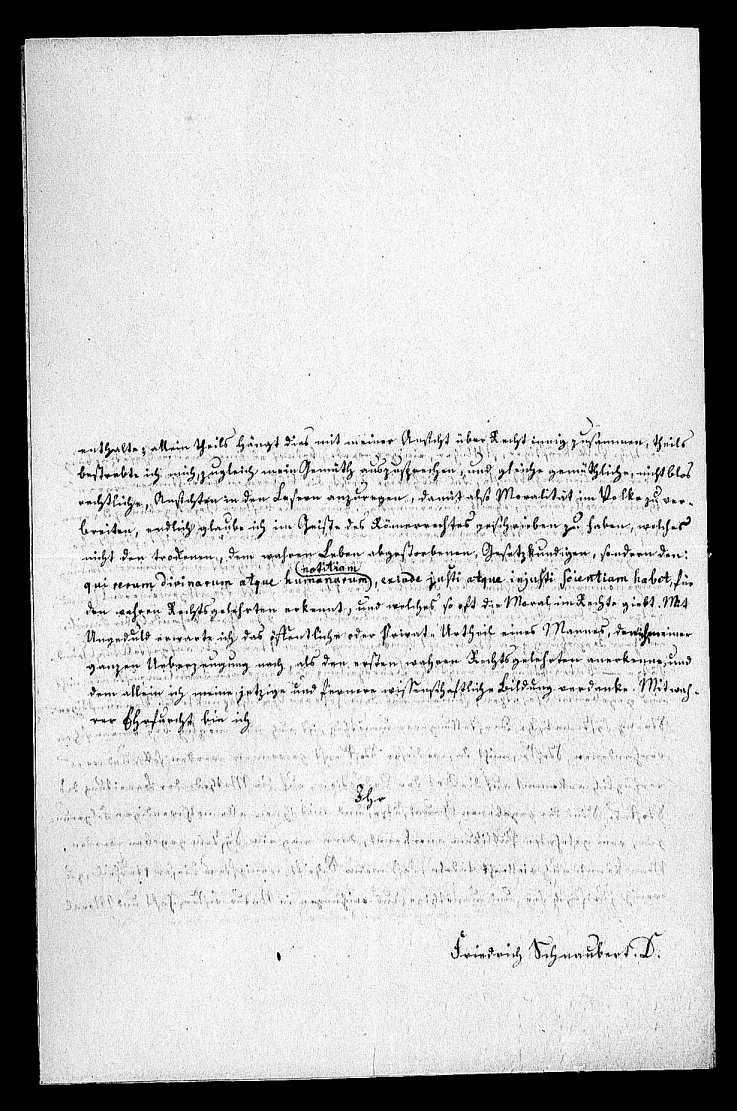 enthalte; allein theils hängt dies mit meiner Ansicht über Recht innig zusammen, theils
bestrebte ich mich, zugleich mein Gemüth auszusprechen, und gleiche gemüthliche, nicht blos
rechtliche, Ansichten in den Lesern anzuregen, damit also Moralität im Volke zu ver-
breiten, endlich glaube ich im Geiste des Römerrechtes geschrieben zu haben, welches
nicht den trockenen, dem wahren Leben abgestorbenen, Gesetzkundigen, sondern den:
notitiam
qui rerum divinarum atque humanarum, exinde justi atque injusti scientiam habet, für
den wahren Rechtsgelehrten erkennt, und welches so oft die Moral im Rechte giebt. Mit
Ungeduld erwarte ich das öffentliche oder Privat-Urtheil eines Mannes, den ich meiner
ganzen Ueberzeugung nach, als den ersten wahren Rechtsgelehrten anerkenne, und
dem allein ich meine jetzige und fernere wissenschaftliche Bildung verdanke. Mit wah-
rer Ehrfurcht bin ich
Ihr
Friedrich Schnaubert. D.